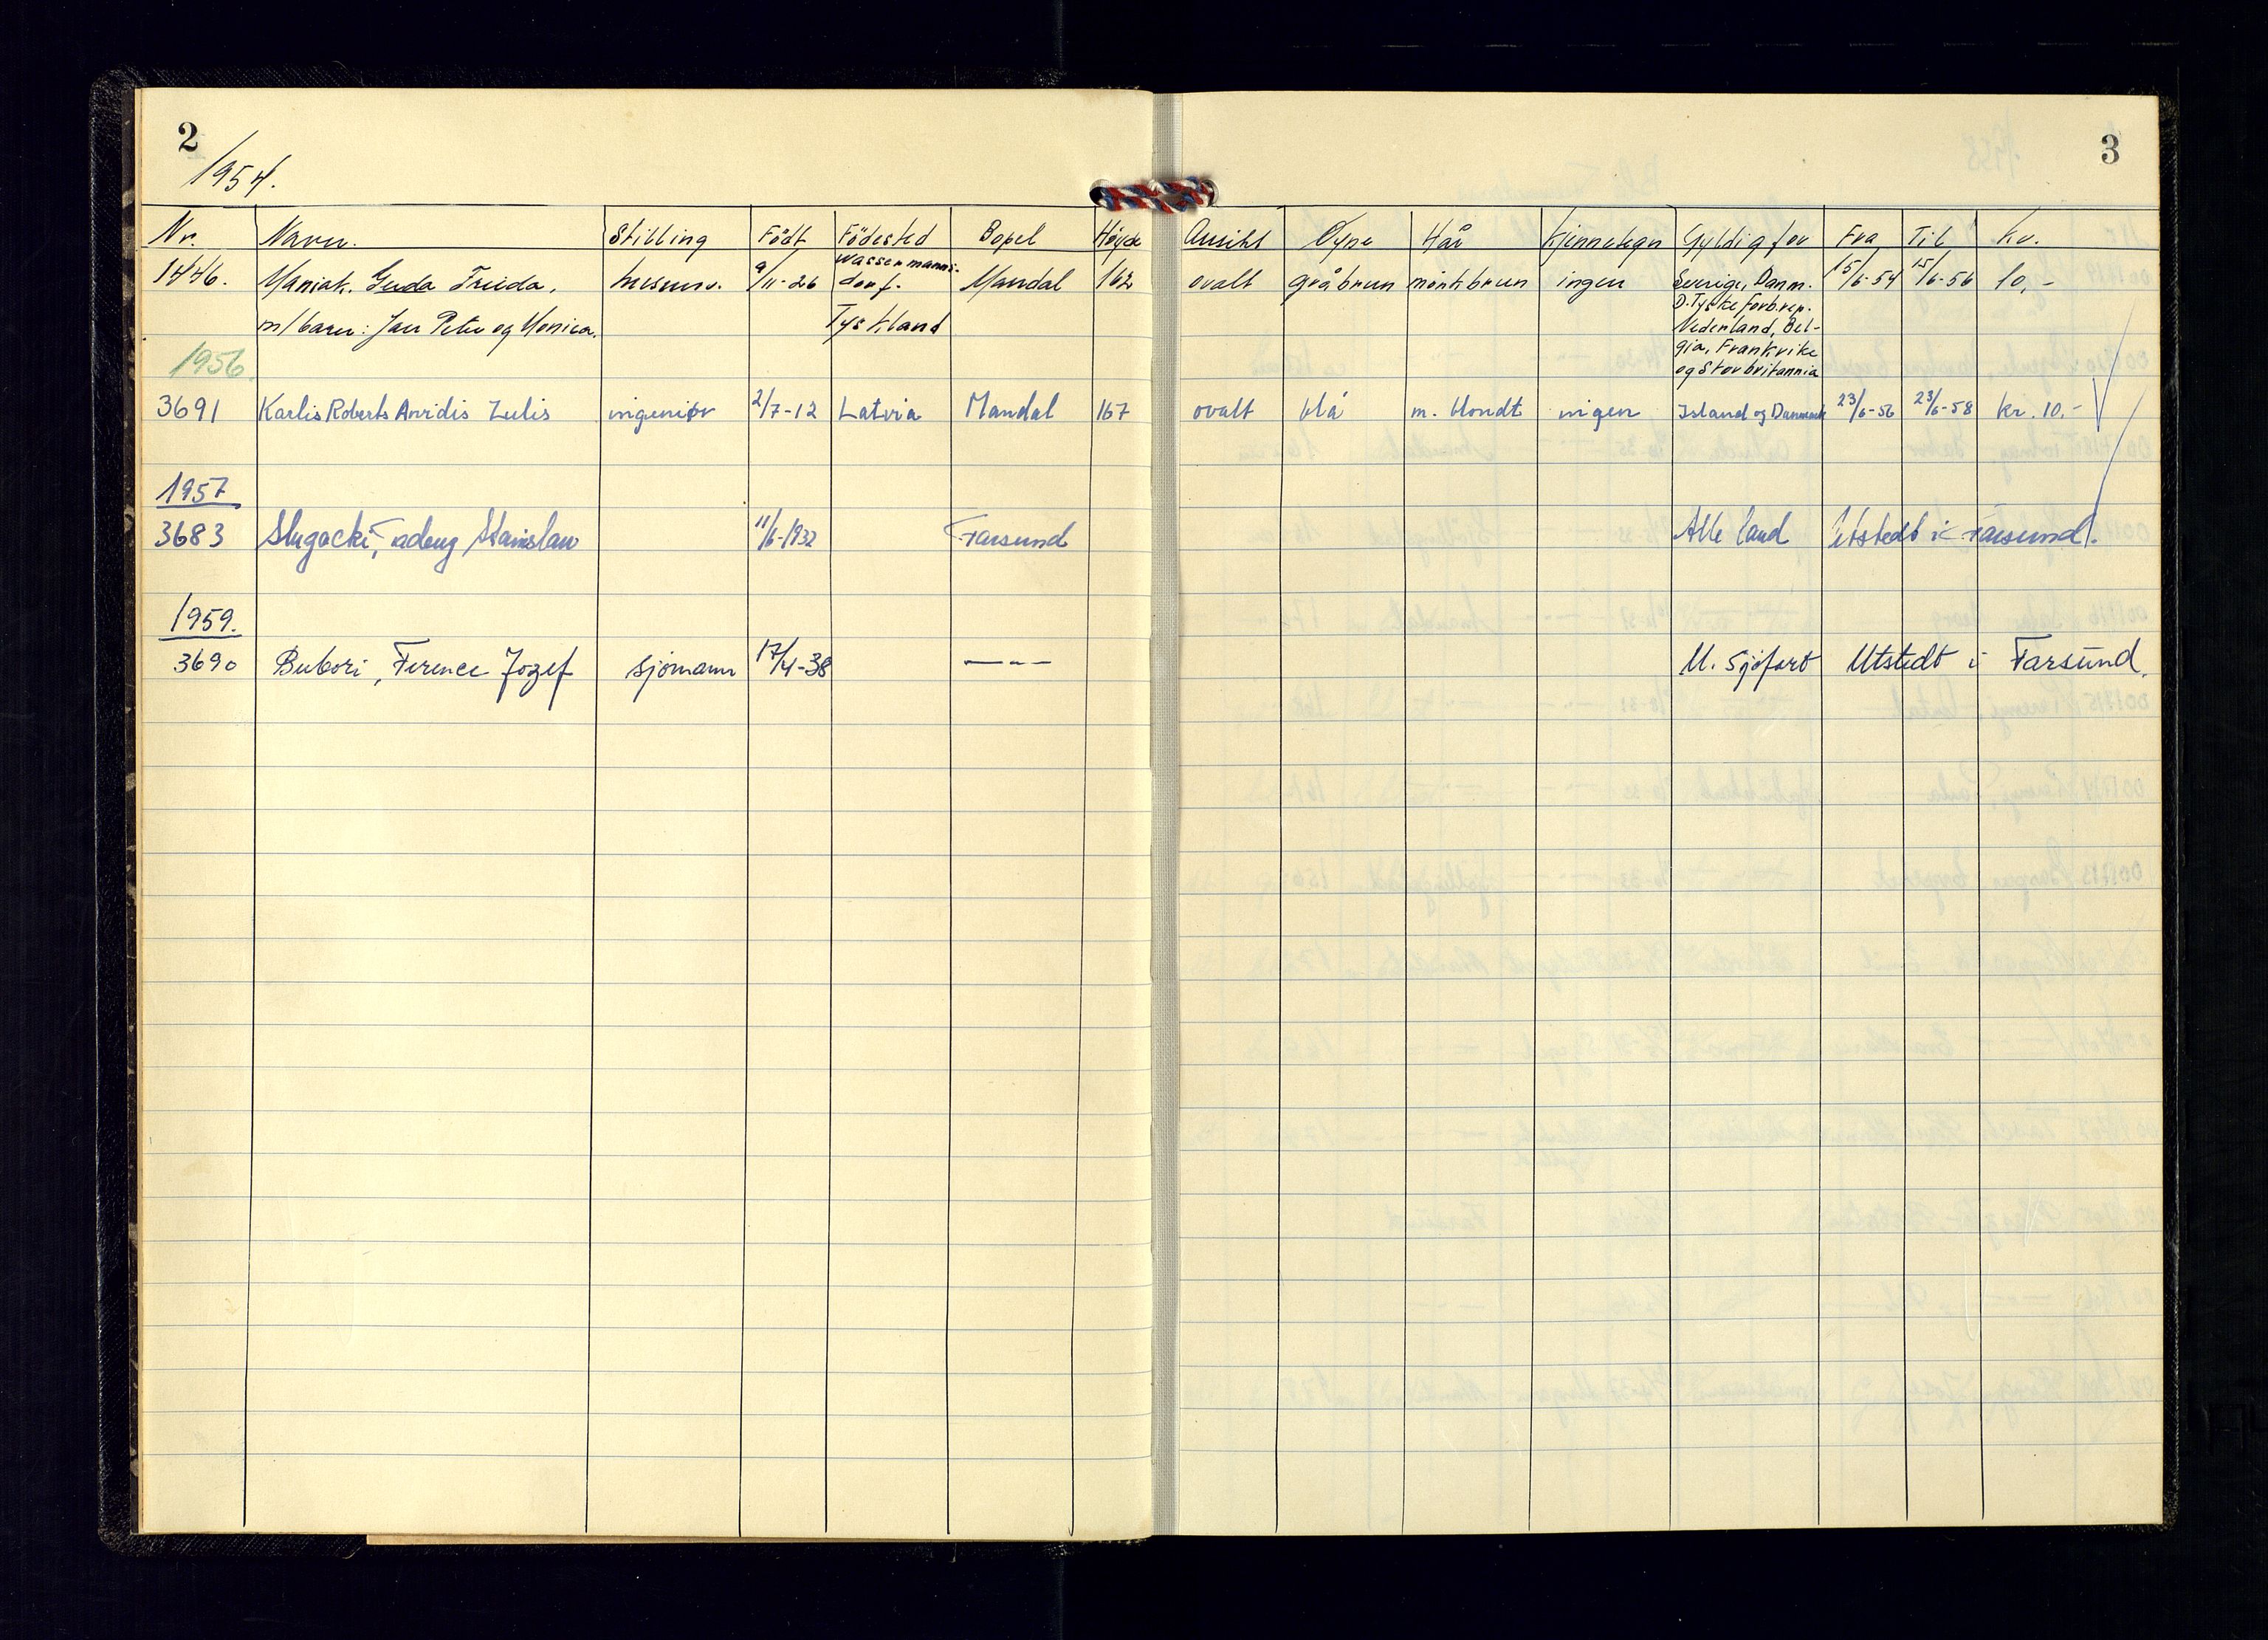 2
3
1954.
Nr. Navn. Stilling Født Fødested Bopel Høyde Ansikt Øyne Hår Kjennetegn Gyldig for Fra Til Kr.
1446. Maniak. Guda Frieda. husmor. 9/11-26 Wassermanns- Mandal 162 ovalt gråbrun mörkbrun ingen Sverige, Danm. 15/6-54 15/6-56 10,-
dorf. D. Tyske forb.rep.
m/barn: Jan Peter og Monica. Tyskland Nederland, Bel-
gia, Frankrike
og Storbritannia
1956.
3691 Karlis Roberts Arvidis Zulis ingeniør 2/7-12 Latvia Mandal 167 ovalt blå m. blondt ingen Island og Danmark 23/6-56 23/6-58 kr. 10.-
1957
3683 Slugocki, Tadeug Stanislaw 11/6-1932 Farsund Alle land Utstedt i Farsund.
1959.
3690 Bubori, Ference Jozef sjömann 17/4-38 —"— U. Sjöfart Utstedt i Farsund.